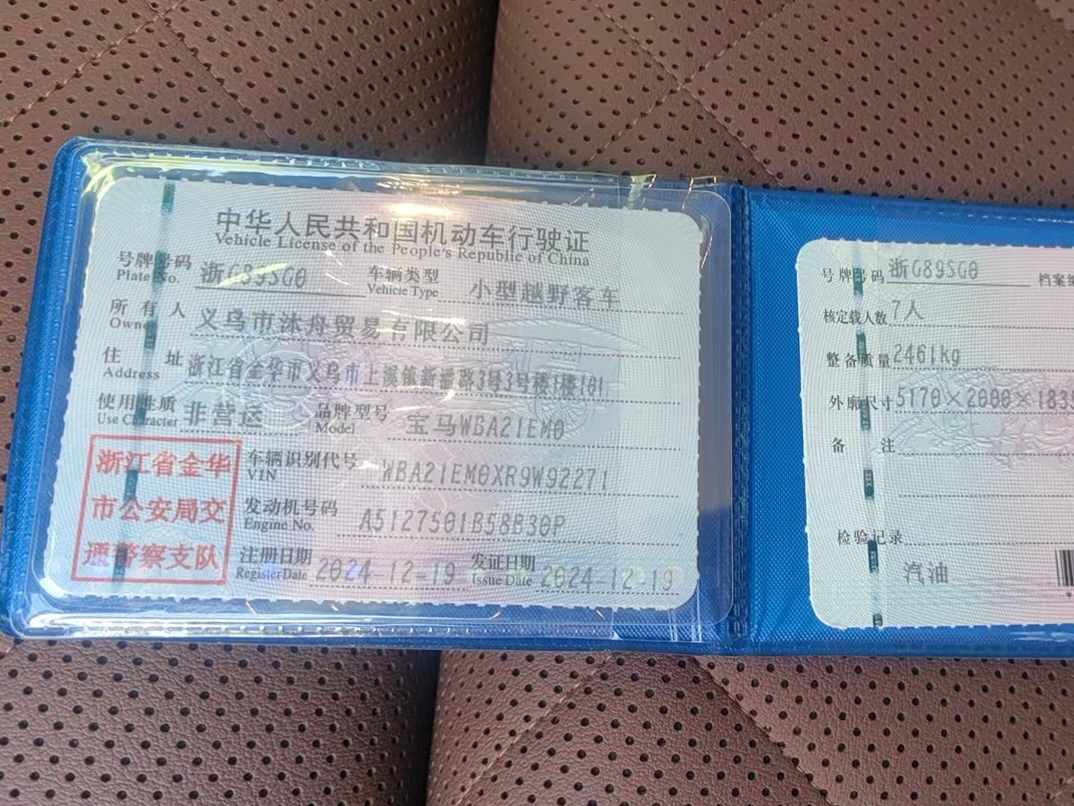 中华人民共和国机动车行驶证
Vehicle License of the People's Republic of China
号牌号码 浙G89SG0 车辆类型 小型越野客车
Plate No. Vehicle Type
所有人 义乌市沐舟贸易有限公司
Owner
住址 浙江省金华市义乌市上溪镇新潘路3号3号楼1楼101
Address
使用性质 非营运 品牌型号 宝马WBA21EM0
Use Character Model
浙江省金华
市公安局交
通警察支队
车辆识别代号 WBA21EM0XR9W92271
VIN
发动机号码 A5127501B58B30P
Engine No.
注册日期 2024-12-19 发证日期 2024-12-19
Register Date Issue Date
号牌号码 浙G89SG0 档案编
核定载人数 7人
整备质量 2461kg
外廓尺寸 5170×2000×1835
备注
检验记录
汽油